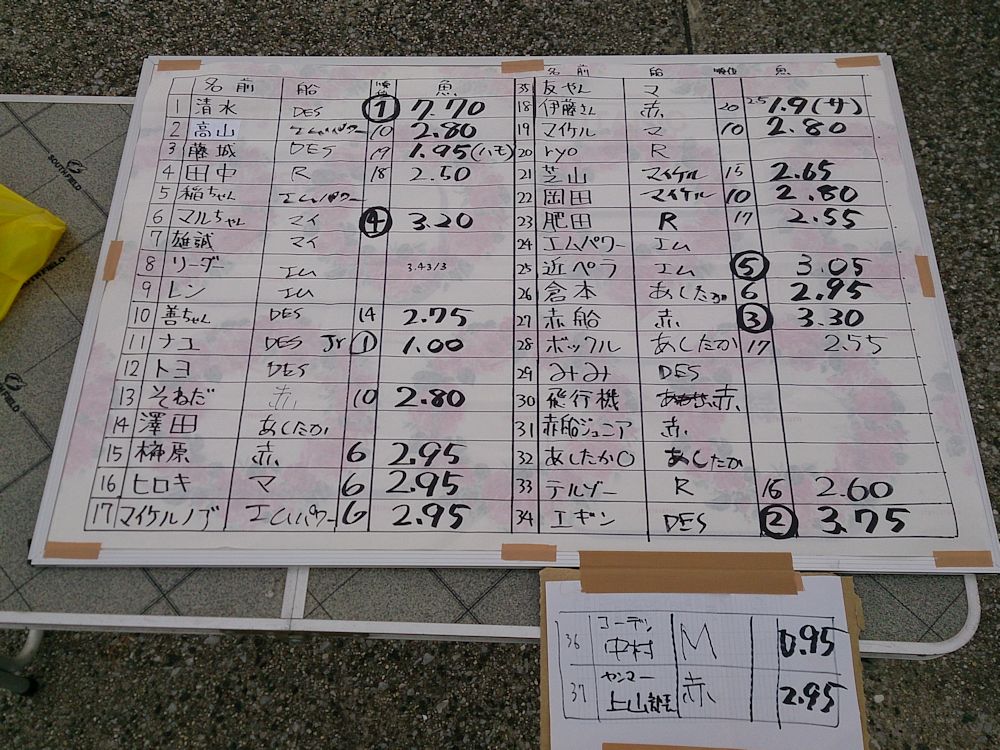 名前 船 順位 魚
1 清水 DES ① 7.70
2 高山 エムパワー 10 2.80
3 藤城 DES 19 1.95(ハモ)
4 田中 R 18 2.50
5 稲ちゃん エムパワー
6 マルちゃん マイ ④ 3.20
7 雄誠 マイ
8 リーダー エム 3.43/3
9 レン エム
10 善ちゃん DES 14 2.75
11 ナユ DES Jr ① 1.00
12 トヨ DES
13 そねだ 赤 10 2.80
14 澤田 あしたか
15 榊原 赤 6 2.95
16 ヒロキ マ 6 2.95
17 マイケルノブ エムパワー 6 2.95
名前 船 順位 魚
35 友やん マ
18 伊藤さん 赤 20 25 1.9(サ)
19 マイケル マ 10 2.80
20 ryo R
21 芝山 マイケル 15 2.65
22 岡田 マイケル 10 2.80
23 肥田 R 17 2.55
24 エムパワー エム
25 近ペラ エム ⑤ 3.05
26 倉本 あしたか 6 2.95
27 赤船 赤 ③ 3.30
28 ボックル あしたか 17 2.55
29 みさみ DES
30 飛行機 赤
31 赤船ジュニア 赤
32 あしたか〇 あしたか
33 テルゾー R 16 2.60
34 エギン DES ② 3.75
36 コーデン 中村 M 0.95
37 ヤンマー 上山 赤 2.95
SOUTH FIELD
SOUTH FIELD
SOUTH FIELD